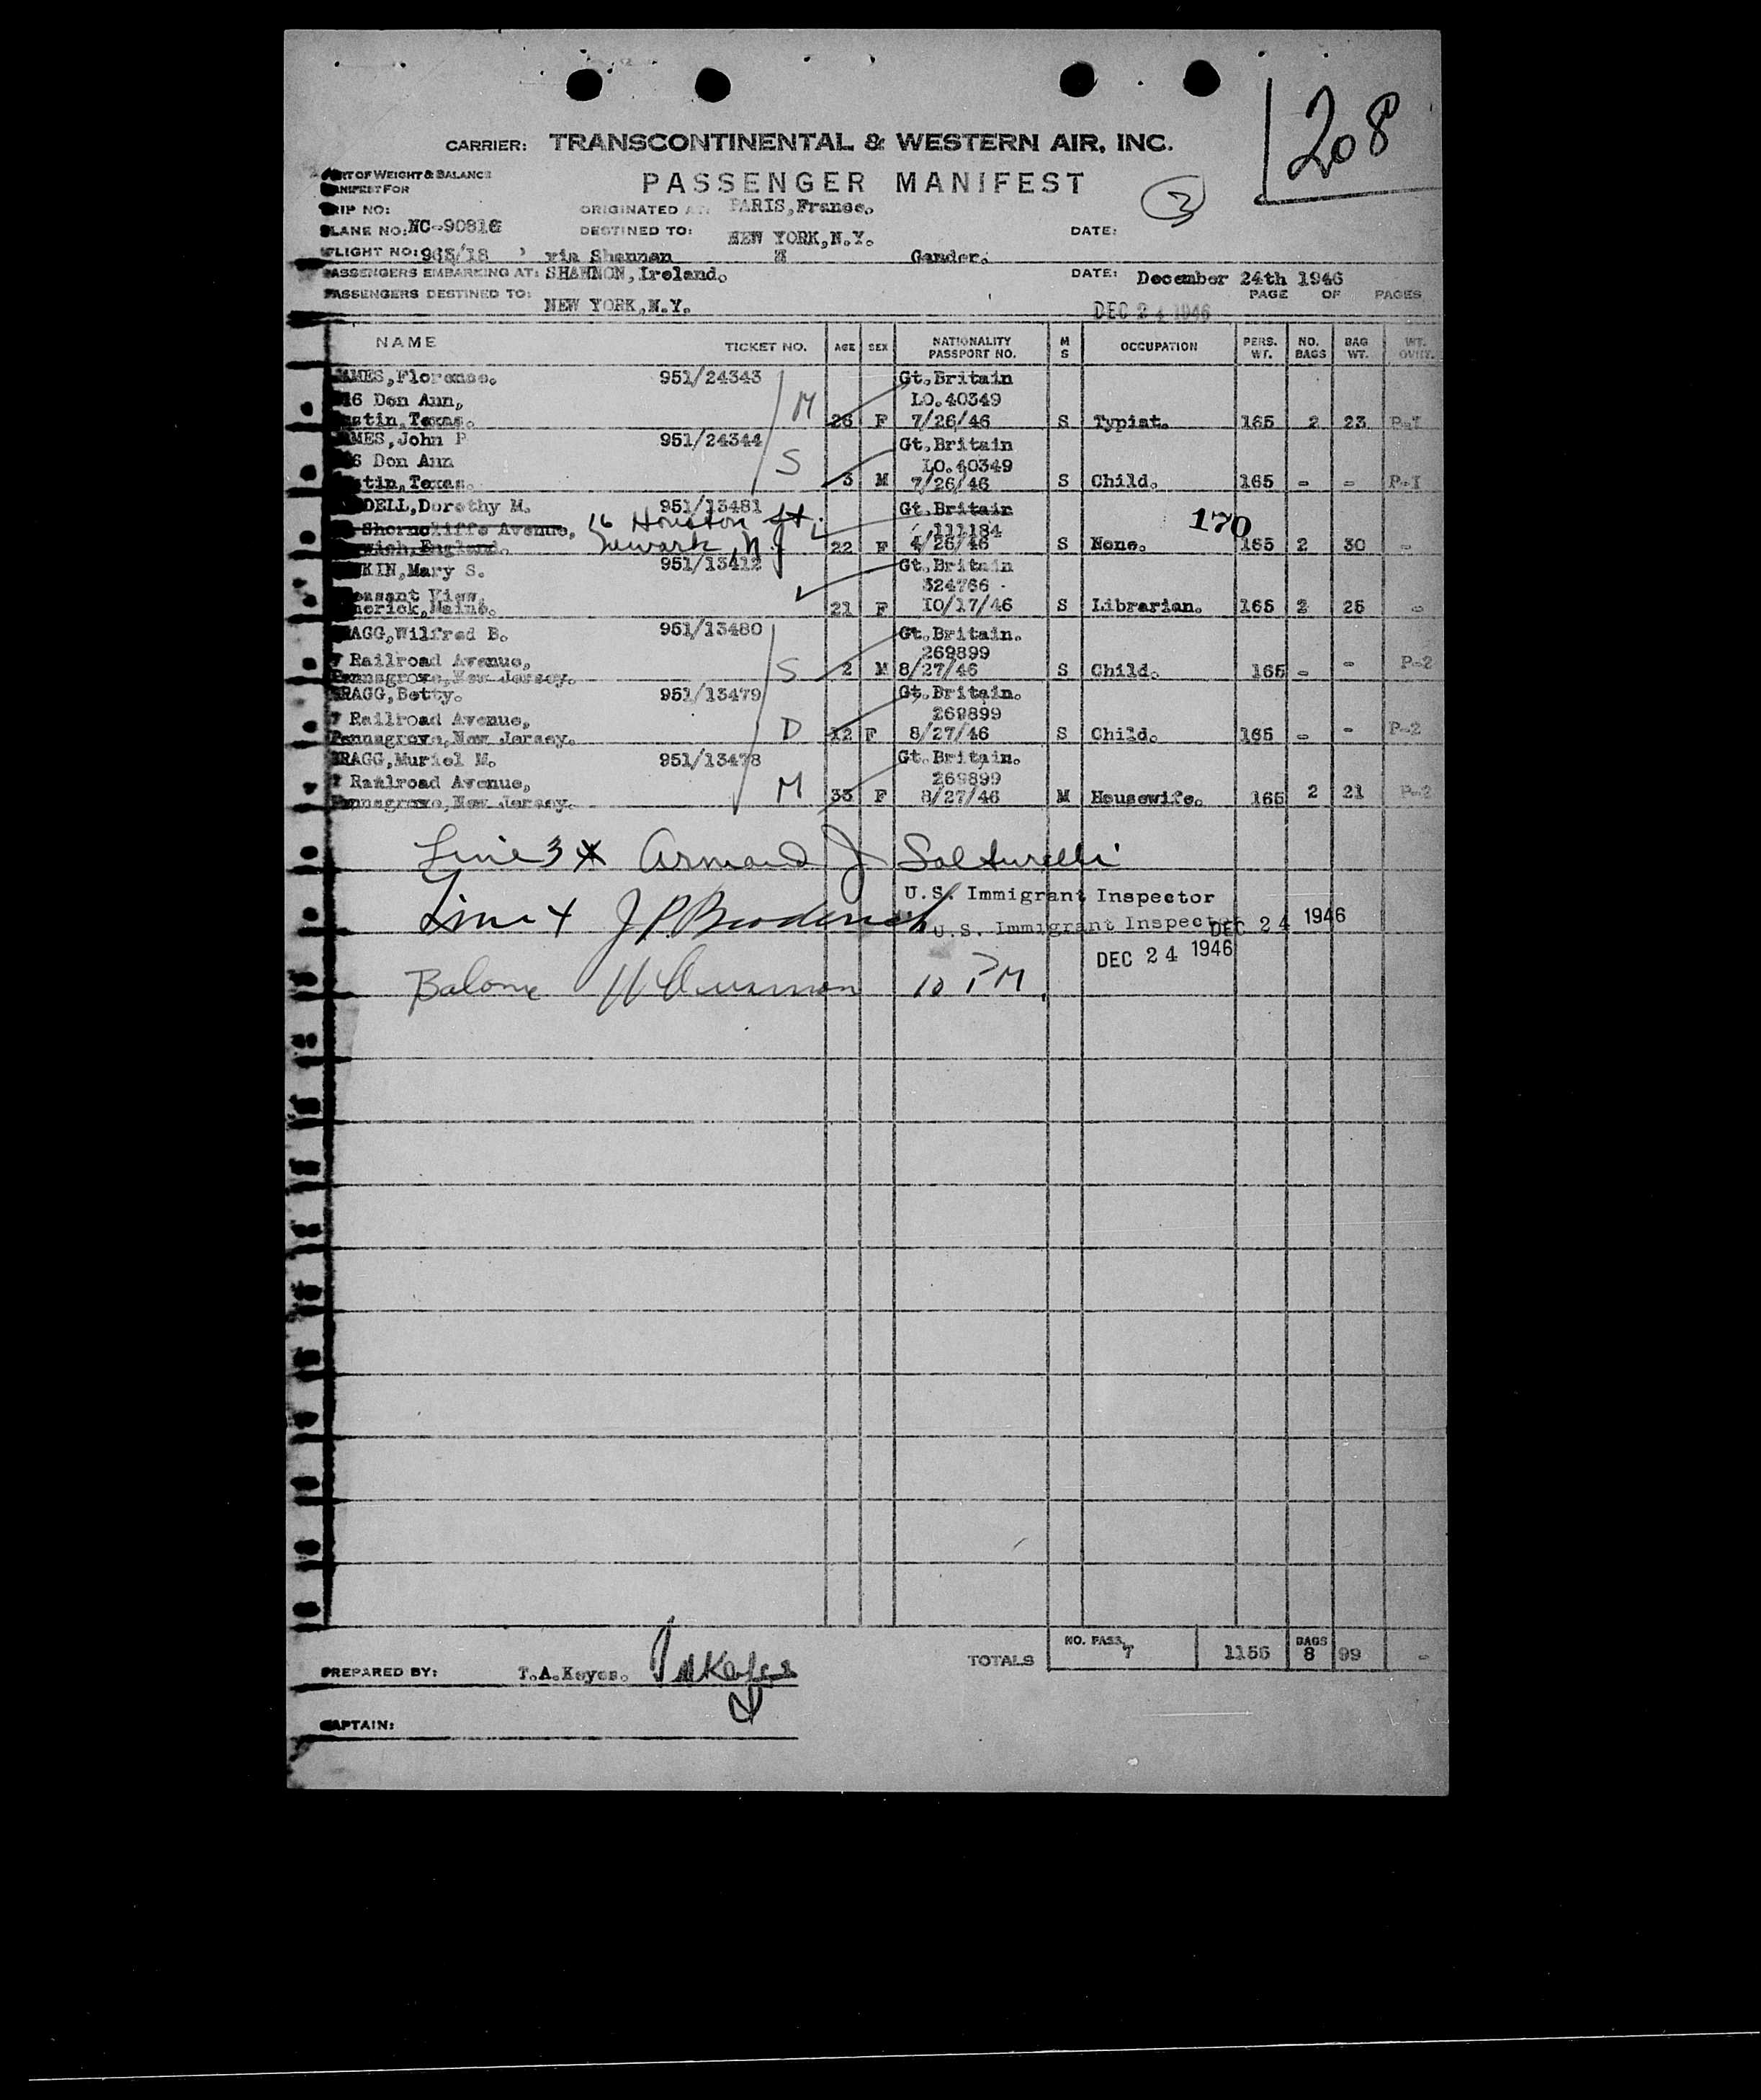 208
CARRIER: TRANSCONTINENTAL & WESTERN AIR, INC.
OF WEIGHT & BALANCE
FOR
PASSENGER MANIFEST
3
RIP NO: ORIGINATED AT: PARIS, France.
LANE NO: NC-90816 DESTINED TO: NEW YORK, N.Y. DATE:
FLIGHT NO: /18 via Shannon & Gander.
PASSENGERS EMBARKING AT: SHANNON, Ireland. DATE: December 24th 1946
PASSENGERS DESTINED TO: NEW YORK, N.Y. PAGE OF PAGES
DEC 24 1946
NAME TICKET NO. AGE SEX NATIONALITY PASSPORT NO. M S OCCUPATION PERS. WT. NO. BAGS BAG WT. WT. OVHT.
AMES, Florence. 951/24343 Gt. Britain
16 Don Ann, M LO.40349
stin, Texas. 26 F 7/26/46 S Typist. 165 2 23 P-I
MES, John P 951/24344 Gt. Britain
6 Don Ann S LO.40349
stin, Texas. 3 M 7/26/46 S Child. 165 - - P-I
DELL, Dorothy M. 951/13481 Gt. Britain
Shorncliffe Avenue, 16 Houston St. 111184 170
wich, England. Newark, N.J 22 F 4/26/46 S None. 165 2 30 -
KIN, Mary S. 951/13412 Gt. Britain
easant View, 324766
merick, Maine. 21 F 10/17/46 S Librarian. 165 2 25 -
AGG, Wilfred B. 951/13480 Gt. Britain.
7 Railroad Avenue, 269899
Pennsgrove, New Jersey. S 2 M 8/27/46 S Child. 165 - - P-2
RAGG, Betty. 951/13479 Gt. Britain.
7 Railroad Avenue, 269899
Pennsgrove, New Jersey. D 12 F 8/27/46 S Child. 165 - - P-2
RAGG, Muriel M. 951/13478 Gt. Britain.
7 Railroad Avenue, 269899
Pennsgrove, New Jersey. M 33 F 8/27/46 M Housewife. 165 2 21 P-2
Line 3 Armand J Salturelli
U.S. Immigrant Inspector
Line 4 J P. Broderick
U.S. Immigrant Inspector DEC 24 1946
DEC 24 1946
10 PM.
TOTALS NO. PASS. 7 1155 BAGS 8 99 -
PREPARED BY: T.A.Keyes. Keyes
APTAIN: